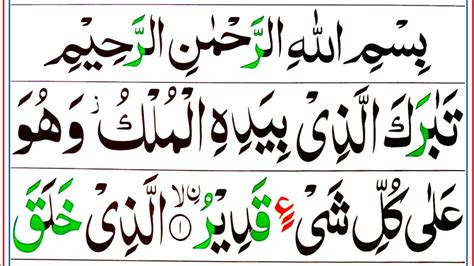 بِسْمِ اللهِ الرَّحْمٰنِ الرَّحِيْمِ
تَبٰرَكَ الَّذِىْ بِيَدِهِ الْمُلْكُ ز وَهُوَ
عَلٰى كُلِّ شَىْءٍ قَدِيْرُ ۙ ن ١ الَّذِىْ خَلَقَ